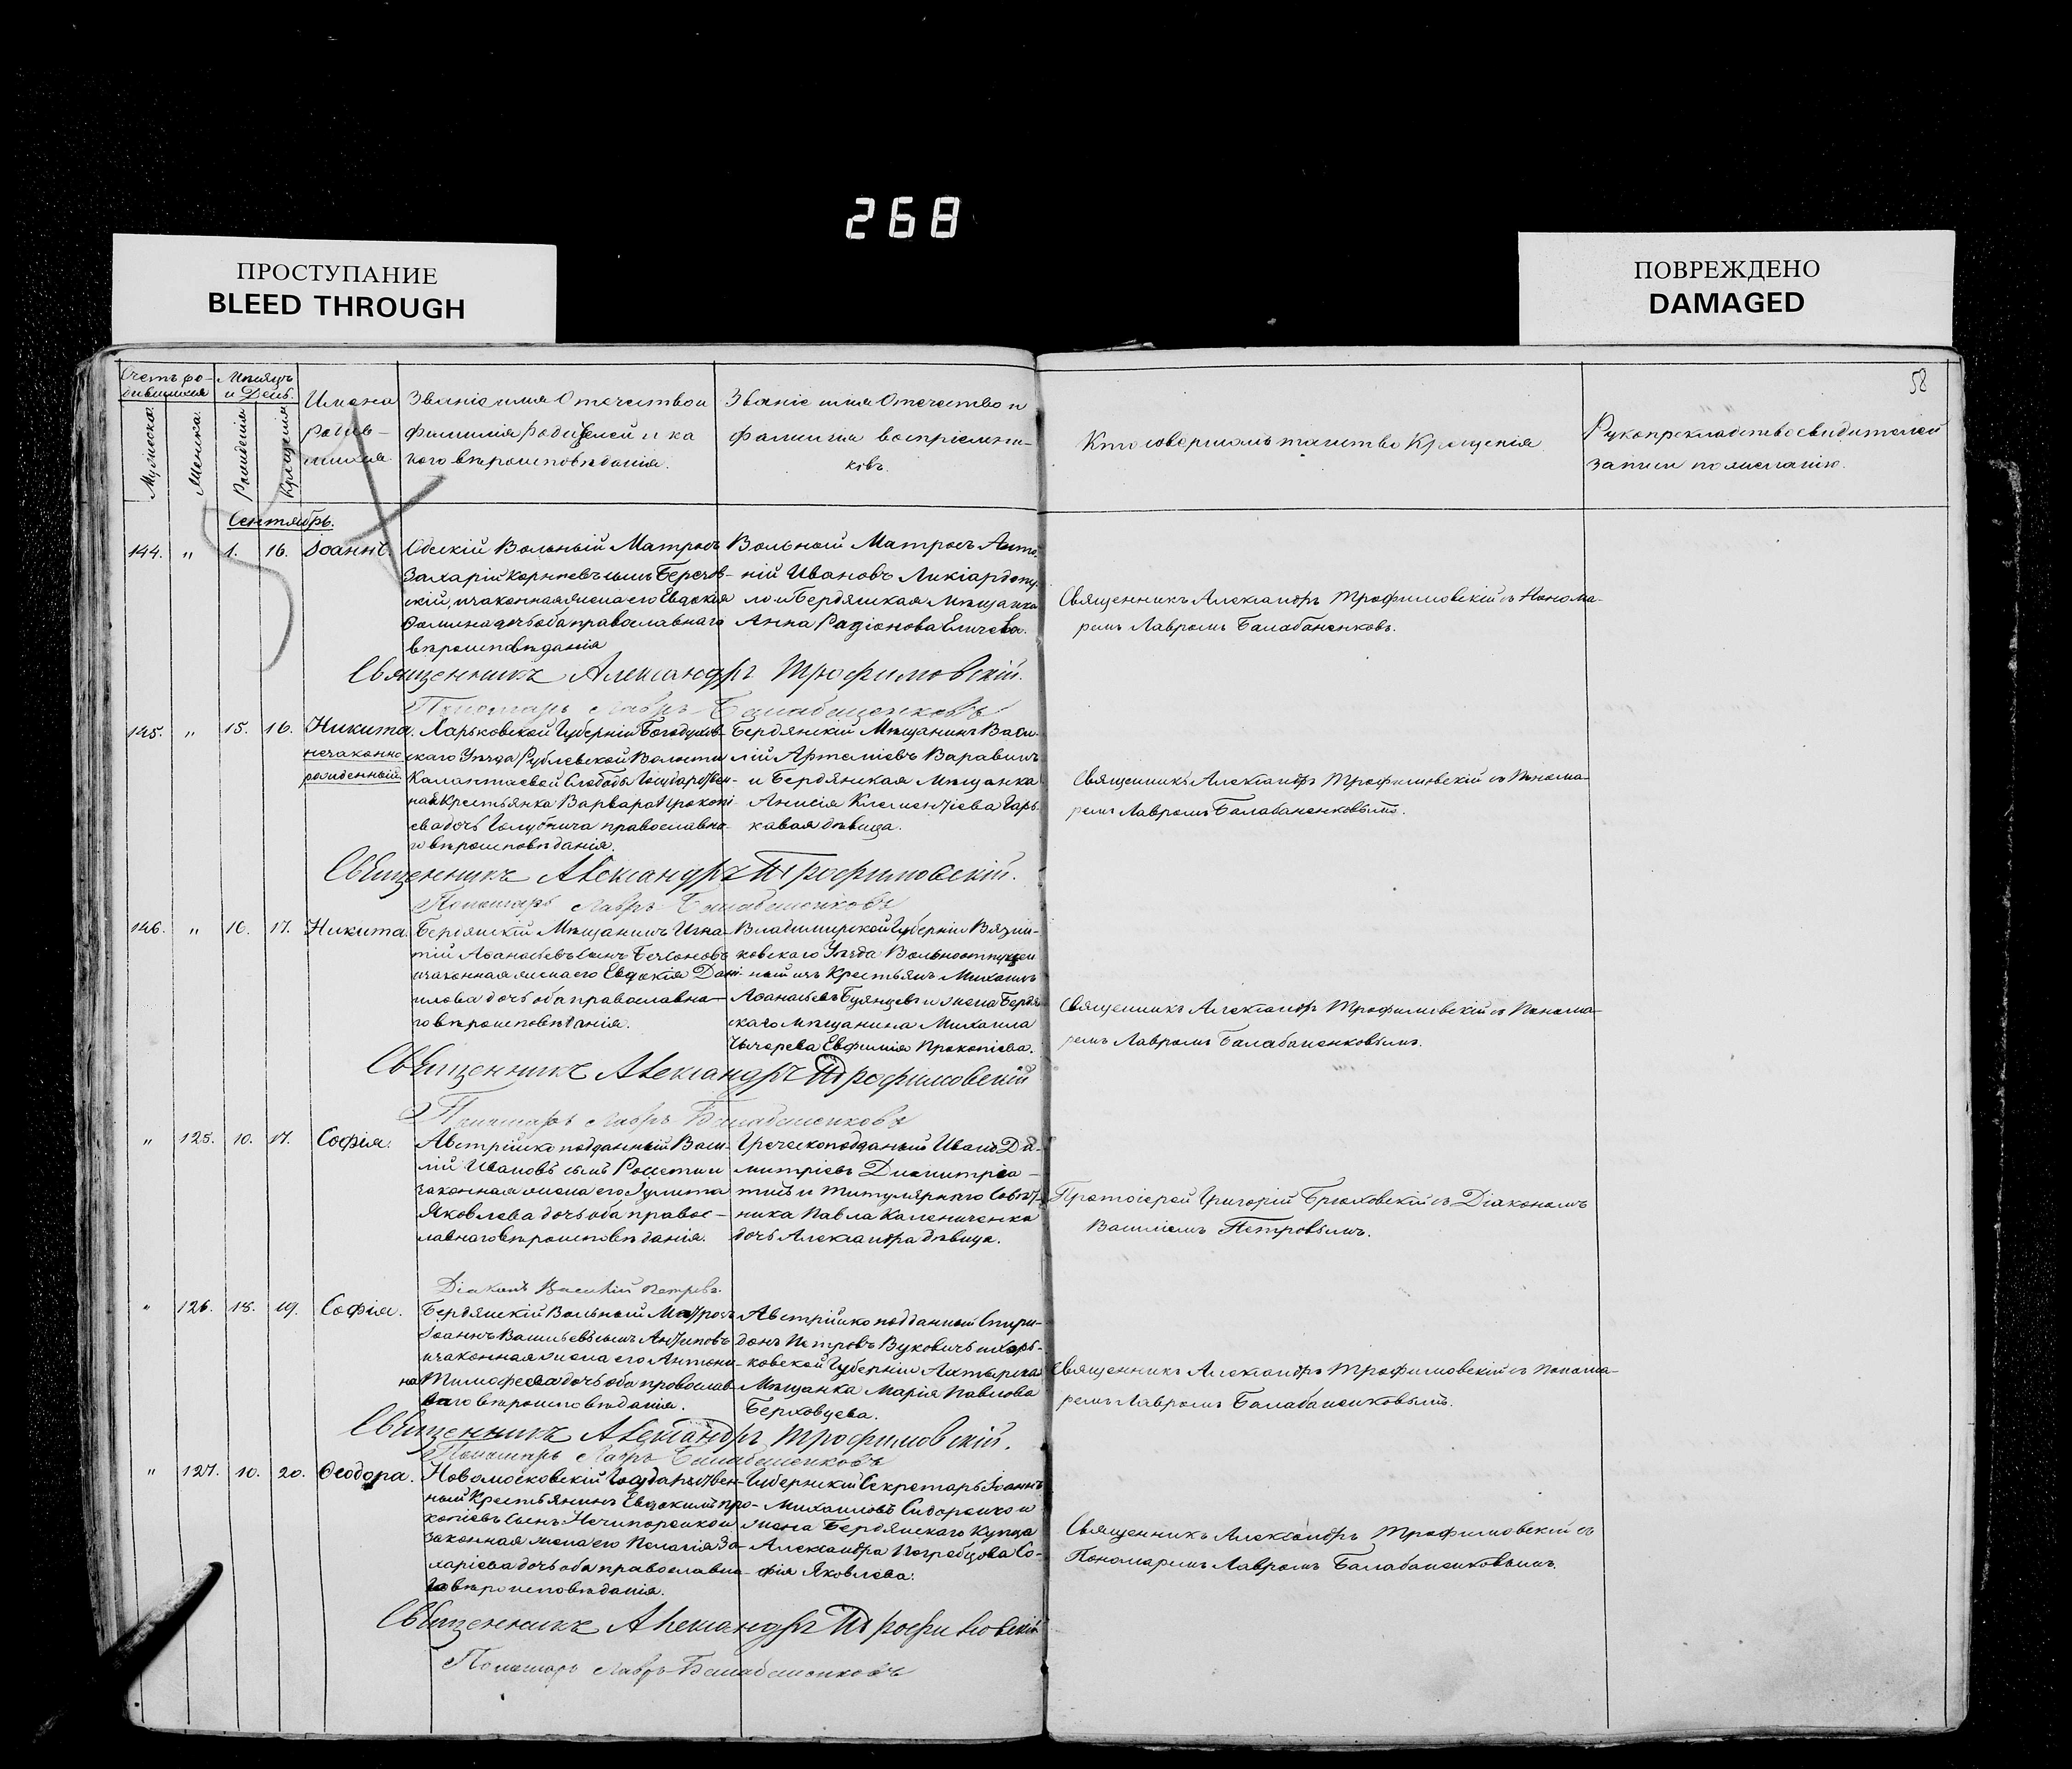 268
ПРОСТУПАНИЕ
BLEED THROUGH
ПОВРЕЖДЕНО
DAMAGED
58
Счетъ ро-
дившихся
Мѣсяцъ
и День.
Мужеска.
Женска.
Рожденія
Крещенія
Имена
родив-
шихся
Званіе имя Отечество и
фамилія родителей и ка
кого вѣроисповѣданія.
Званіе имя Отечество и
фамилія воспріемни-
ковъ.
Кто совершалъ таинство Крещенія
Рукоприкладство свидѣтелей
записи по желанію.
Сентябрь.
144. " 1. 16. Іоаннъ.
Одескій Вольный Матросъ
Захарій Корнѣевъ сынъ
скій, и законная жена его Евдокія
Фомина дочь оба православнаго
вѣроисповѣданія
Вольный Матросъ Анто-
ній Ивановъ
ло и Бердянская Мѣщанка
Анна Радіонова
Священникъ Александръ Трофимовскій съ Понома-
ремъ Лавромъ Балабаненковъ.
Священникъ Александръ Трофимовскій.
Пономарь Лавръ Балабаненковъ
145. " 15. 16. Никита.
незаконно
рожденный
Харьковской Губерніи Богодухов-
скаго Уѣзда Рублевской Волости
Калантаевой Слободы Государствен-
ная Крестьянка Варвара Прокопі-
ева дочь православна-
го вѣроисповѣданія.
Бердянскій Мѣщанинъ Васи-
лій Артеміевъ Варавинъ
и Бердянская Мѣщанка
Анисія Климентіева Гарь-
кавая дѣвица.
Священникъ Александръ Трофимовскій съ Понома-
ремъ Лавромъ Балабаненковымъ.
Священникъ Александръ Трофимовскій.
Пономарь Лавръ Балабаненковъ
146. " 16. 17. Никита.
Бердянскій Мѣщанинъ Игна-
тій Аѳанасьевъ сынъ
и законная жена его Евдокія Дані-
илова дочь оба православна-
го вѣроисповѣданія.
Владимирской Губерніи Вязни-
ковскаго Уѣзда Вольноотпущен
ный изъ Крестьянъ Михаилъ
Аѳанасьевъ и жена Бердян
скаго мѣщанина Михаила
Евфимія Прокопіева.
Священникъ Александръ Трофимовскій съ Понома-
ремъ Лавромъ Балабаненковымъ.
Священникъ Александръ Трофимовскій
Пономарь Лавръ Балабаненковъ
" 125. 10. 17. Софія.
Австрійско подданный Васи-
лій Ивановъ сынъ и
законная жена его Іулита
Яковлева дочь оба правос-
лавнаго вѣроисповѣданія.
Греческоподданый Иванъ Ди-
митріевъ
и Титулярнаго Совѣт-
ника Павла Калениченка
дочь Александра дѣвица.
Протоіерей Григорій Брюховскій съ Діакономъ
Василіемъ Петровымъ.
Діаконъ Василій Петровъ.
" 126. 18. 19. Софія.
Бердянскій Вольный Матросъ
Іоаннъ Васильевъ сынъ Антиповъ
и законная жена его Антони-
на Тимофеева дочь оба православ
наго вѣроисповѣданія.
Австрійско подданный Спири-
донъ Петровъ Вуковичь и Харь-
ковской Губерніи Ахтырска
Мѣщанка Марія Павлова
Берховцева.
Священникъ Александръ Трофимовскій съ Понома-
ремъ Лавромъ Балабаненковымъ.
Священникъ Александръ Трофимовскій.
Пономарь Лавръ Балабаненковъ
" 127. 10. 20. Ѳеодора.
Новомосковскій Государствен-
ный Крестьянинъ Евдокимъ Про-
копіевъ сынъ Нечипоренко и
законная жена его Пелагія За-
харіева дочь оба православна-
го вѣроисповѣданія.
Губернскій Секретарь Іоаннъ
Михаиловъ Сидоренко и
жена Бердянскаго Купца
Александра Погребцова Со-
фія Яковлева.
Священникъ Александръ Трофимовскій съ
Пономаремъ Лавромъ Балабаненковымъ.
Священникъ Александръ Трофимовскій
Пономарь Лавръ Балабаненковъ